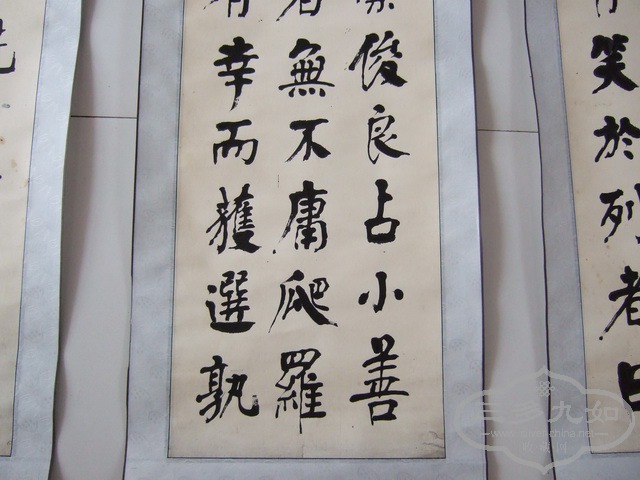 有笑於列者曰
崇俊良占小善
者無不庸爬羅
有幸而獲選孰
三多九如